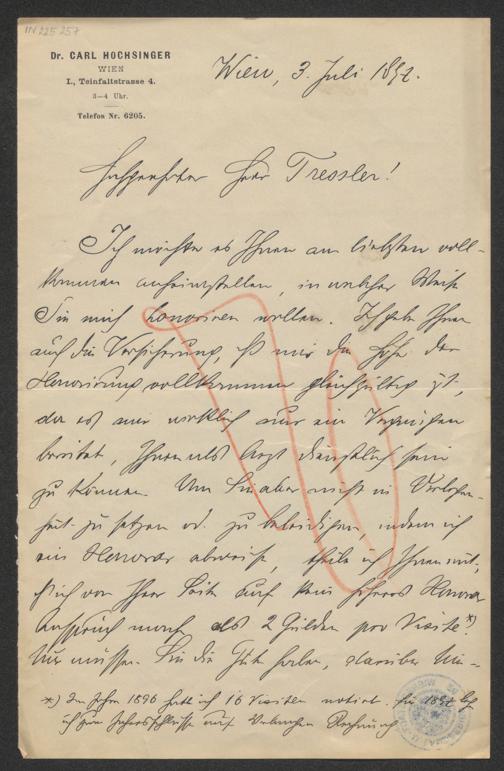 IN 225 257
Dr. CARL HOCHSINGER
WIEN
I., Teinfaltstrasse 4.
3—4 Uhr.
Telefon Nr. 6205.
Wien, 3. Juli 1897.
Hochgeehrter Herr Tressler!
Ich möchte es Ihnen am liebsten voll-
kommen anheimstellen, in welcher Weise
Sie mich honoriren wollen. Ich gebe Ihnen
auch die Versicherung, daß mir die Höhe der
Honorirung vollkommen gleichgültig ist,
da es mir wirklich nur ein Vergnügen
bereitet, Ihnen als Arzt dienstlich sein
zu können. Um Sie aber nicht in Verlegen-
heit zu setzen od. zu beleidigen, indem ich
ein Honorar abweise, theile ich Ihnen mit,
daß ich von Ihrer Seite auf kein höheres Honorar
Anspruch mache als 2 Gulden pro Visite*).
Nur müssen Sie die Güte haben, darüber
*) Im Jahre 1896 hatte ich 16 Visiten notirt. Für 1897
ich zum Jahresschlusse auf Verlangen Rechnung